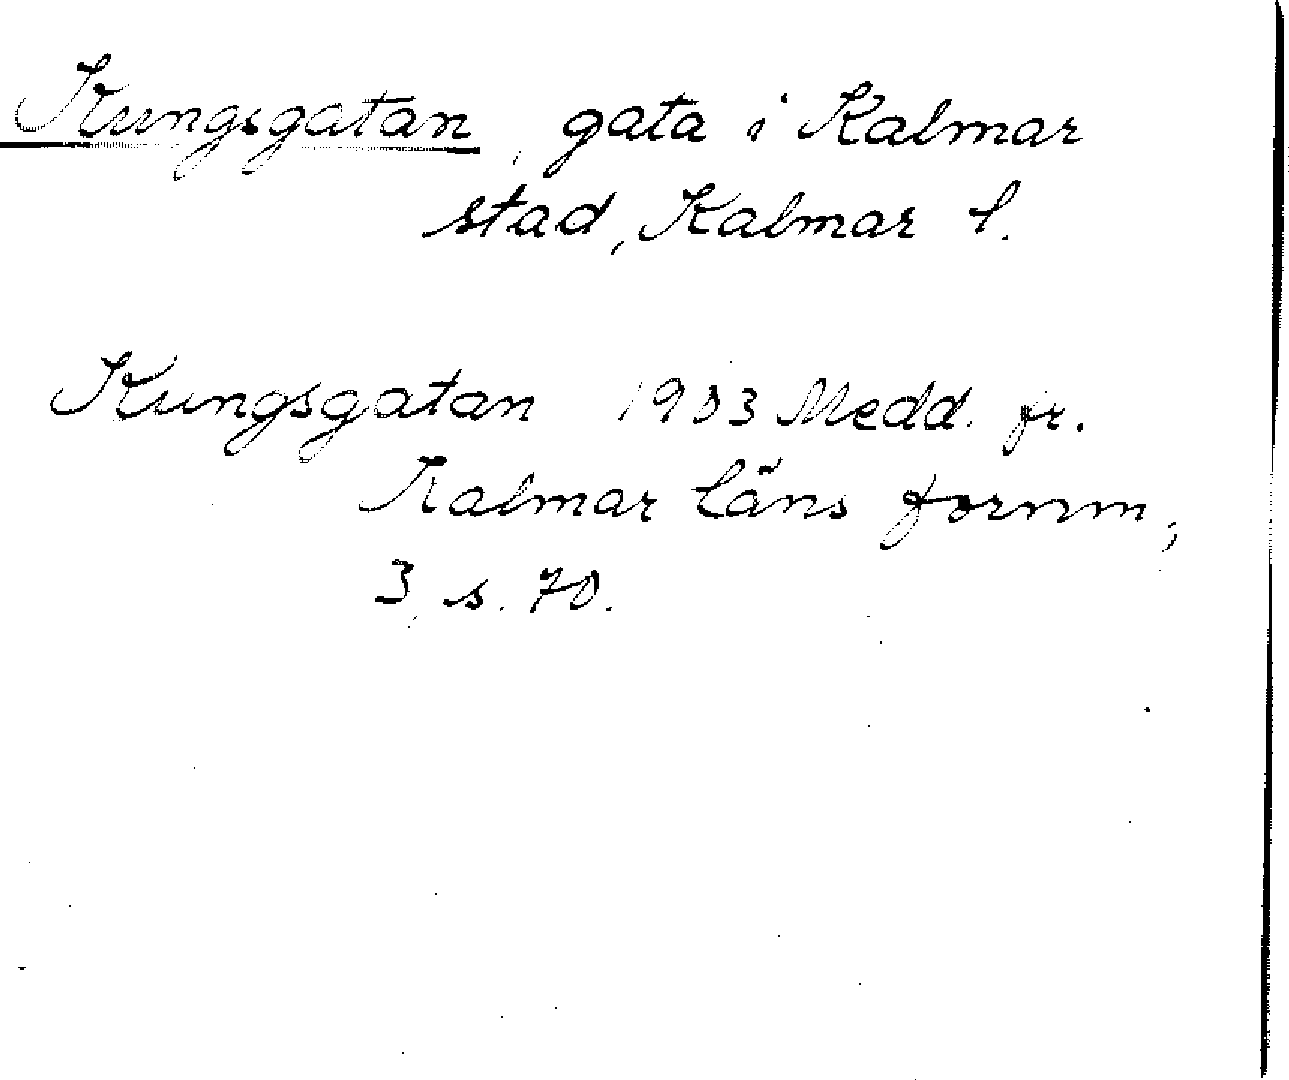 Kungsgatan, gata i Kalmar
stad, Kalmar l.
Kungsgatan 1903 Medd. fr.
Kalmar läns fornm,
3, s. 70.